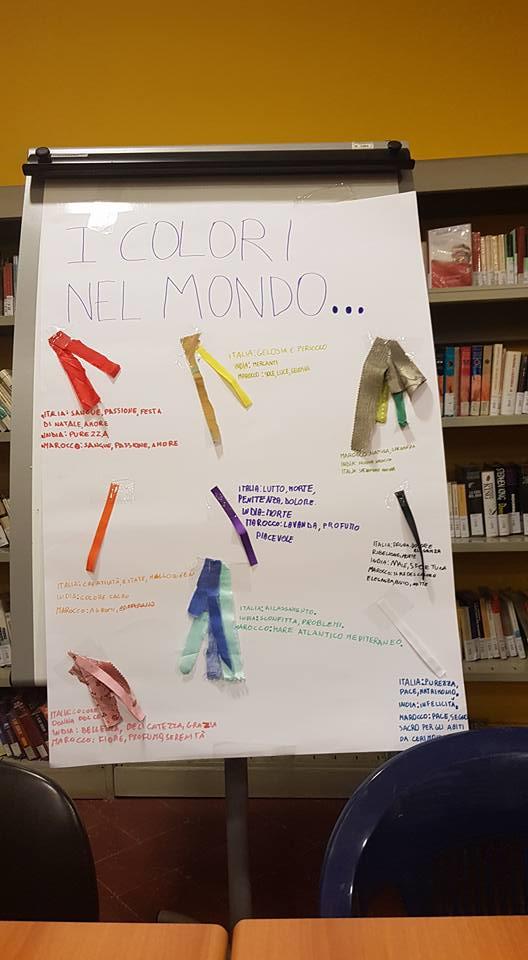 I COLORI
NEL MONDO...
ITALIA: GELOSIA E PERICOLO
INDIA: MERCANTI
MAROCCO: SOLE, LUCE, GELOSIA
ITALIA: SANGUE, PASSIONE, FESTA
DI NATALE, AMORE
INDIA: PUREZZA
MAROCCO: SANGUE, PASSIONE, AMORE
MAROCCO: NATURA, SPERANZA
INDIA:
ITALIA: SPERANZA
ITALIA: LUTTO, MORTE,
PENITENZA, DOLORE.
INDIA: MORTE
MAROCCO: LAVANDA, PROFUMO
PIACEVOLE
ITALIA: ELEGANZA
INDIA: MALE, SFORTUNA
MAROCCO:
ELEGANZA, BUIO, NOTTE
ITALIA: CREATIVITÀ, ESTATE, HALLOWEEN
INDIA: COLORE SACRO
MAROCCO: AGRUMI,
ITALIA: RILASSAMENTO.
INDIA: SCONFITTA, PROBLEMI.
MAROCCO: MARE ATLANTICO MEDITERANEO.
ITALIA: COLORE
DONNA
INDIA: BELLEZZA, DELICATEZZA, GRAZIA
MAROCCO: FIORE, PROFUMO, SERENITÀ
ITALIA: PUREZZA,
PACE, MATRIMONIO.
INDIA: INFELICITÀ,
MAROCCO: PACE,
SACRO PER GLI ABITI
DA
STEPHEN KING
KING